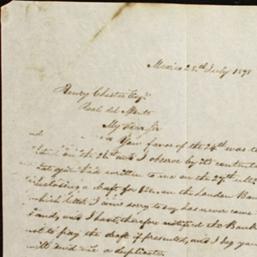 Mexico 28th July 18
Henry Chester Esqr
Real del Monte
My dear Sir
Your favor of the 24th was
on the 26th and I observe by its contents
that you had written to me on the 27th
enclosing a draft for on the London Bank
which letter I am sorry to say has never come
and I have therefore noticed the Bank
not to pay the draft if presented, and I beg you
will send me a duplicate